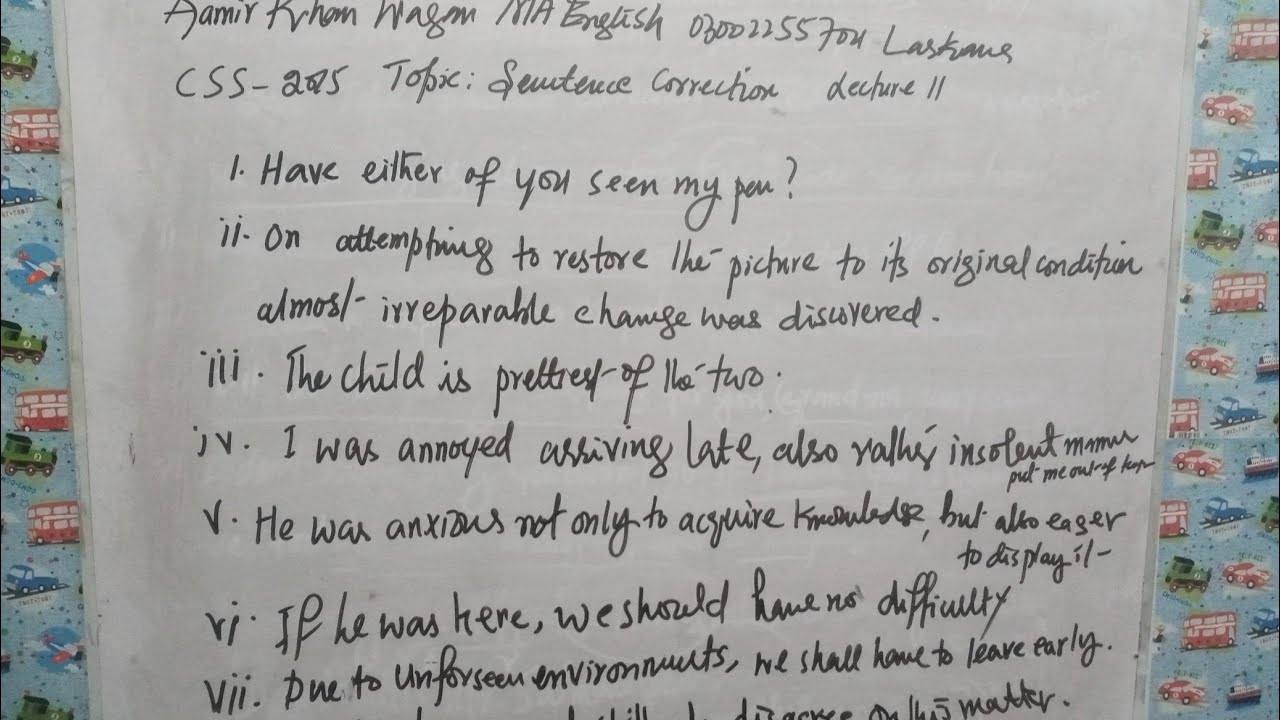 Aamir Khan Wagan MA English 03002255704 Larkana
CSS-2015 Topic: Sentence Correction Lecture 11
1. Have either of you seen my pen?
ii. On attempting to restore the picture to its original condition
almost irreparable change was discovered.
iii. The child is prettiest of the two.
iv. I was annoyed arriving late, also rather insolent manner
put me out of
v. He was anxious not only to acquire knowledge, but also eager
to display it
vi. If he was here, we should have no difficulty
vii. Due to unforseen environments, we shall have to leave early.
disagree on this matter.